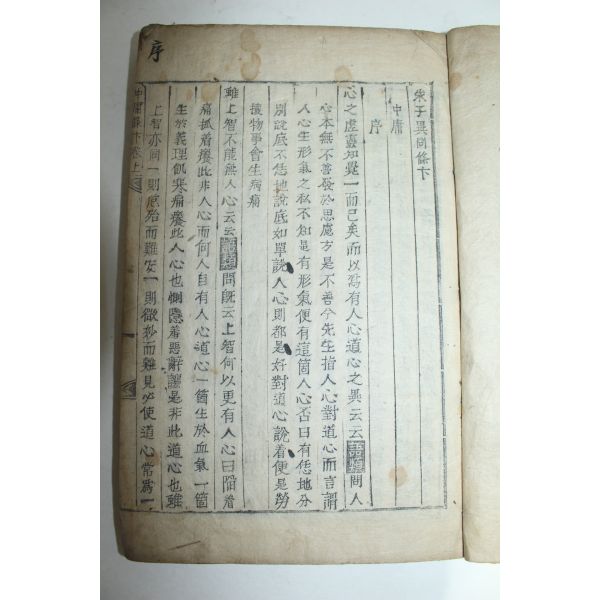 序
朱子異同條卞
中庸
序
心之虛靈知覺一而已矣而以爲有人心道心之異云云語類問人
心本無不善發於思慮方是不善今先生指人心對道心而言謂
人心生形氣之私不知是有形氣便有這箇人心否曰有恁地分
別說底不恁地說底如單說人心則都是好對道心說着便是勞
攘物事會生病痛
雖上智不能無人心云云語類問旣云上智何以更有人心曰陷着
痛抓着癢此非人心而何人自有人心道心一箇生於血氣一箇
生於義理飢寒痛癢此人心也惻隱羞惡辭讓是非此道心也雖
上智亦同一則危殆而難安一則微妙而難見必使道心常爲一
中庸條卞卷上